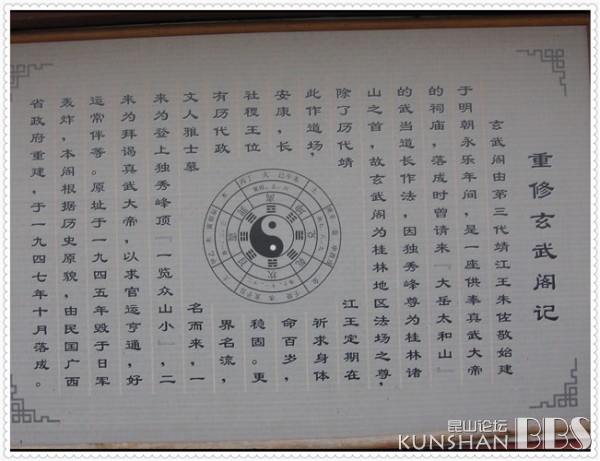 重修玄武阁记
玄武阁由第三代靖江王朱佐敬始建
于明朝永乐年间，是一座供奉真武大帝
的祠庙，落成时曾请来『大岳太和山』
的武当道长作法，因独秀峰尊为桂林诸
山之首，故玄武阁为桂林地区法场之尊，
除了历代靖江王定期在
此作道场，祈求身体
安康，长命百岁，
社稷王位稳固。更
有历代政界名流，
文人雅士墓名而来，一
来为登上独秀峰顶『一览众山小』，二
来为拜谒真武大帝，以求官运亨通，好
运常伴等。原址于一九四五年毁于日军
轰炸，本阁根据历史原貌，由民国广西
省政府重建，于一九四七年十月落成。
昆山论坛
KUNSHAN BBS